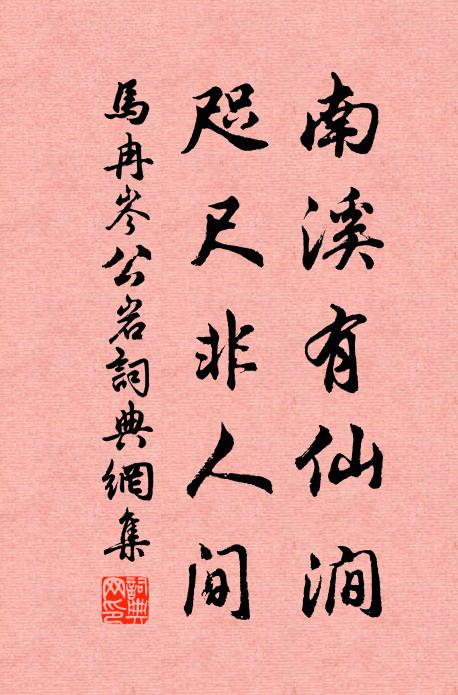 南溪有仙涧
咫尺非人间
馬冉岑公岩詞典網集
詞典网印